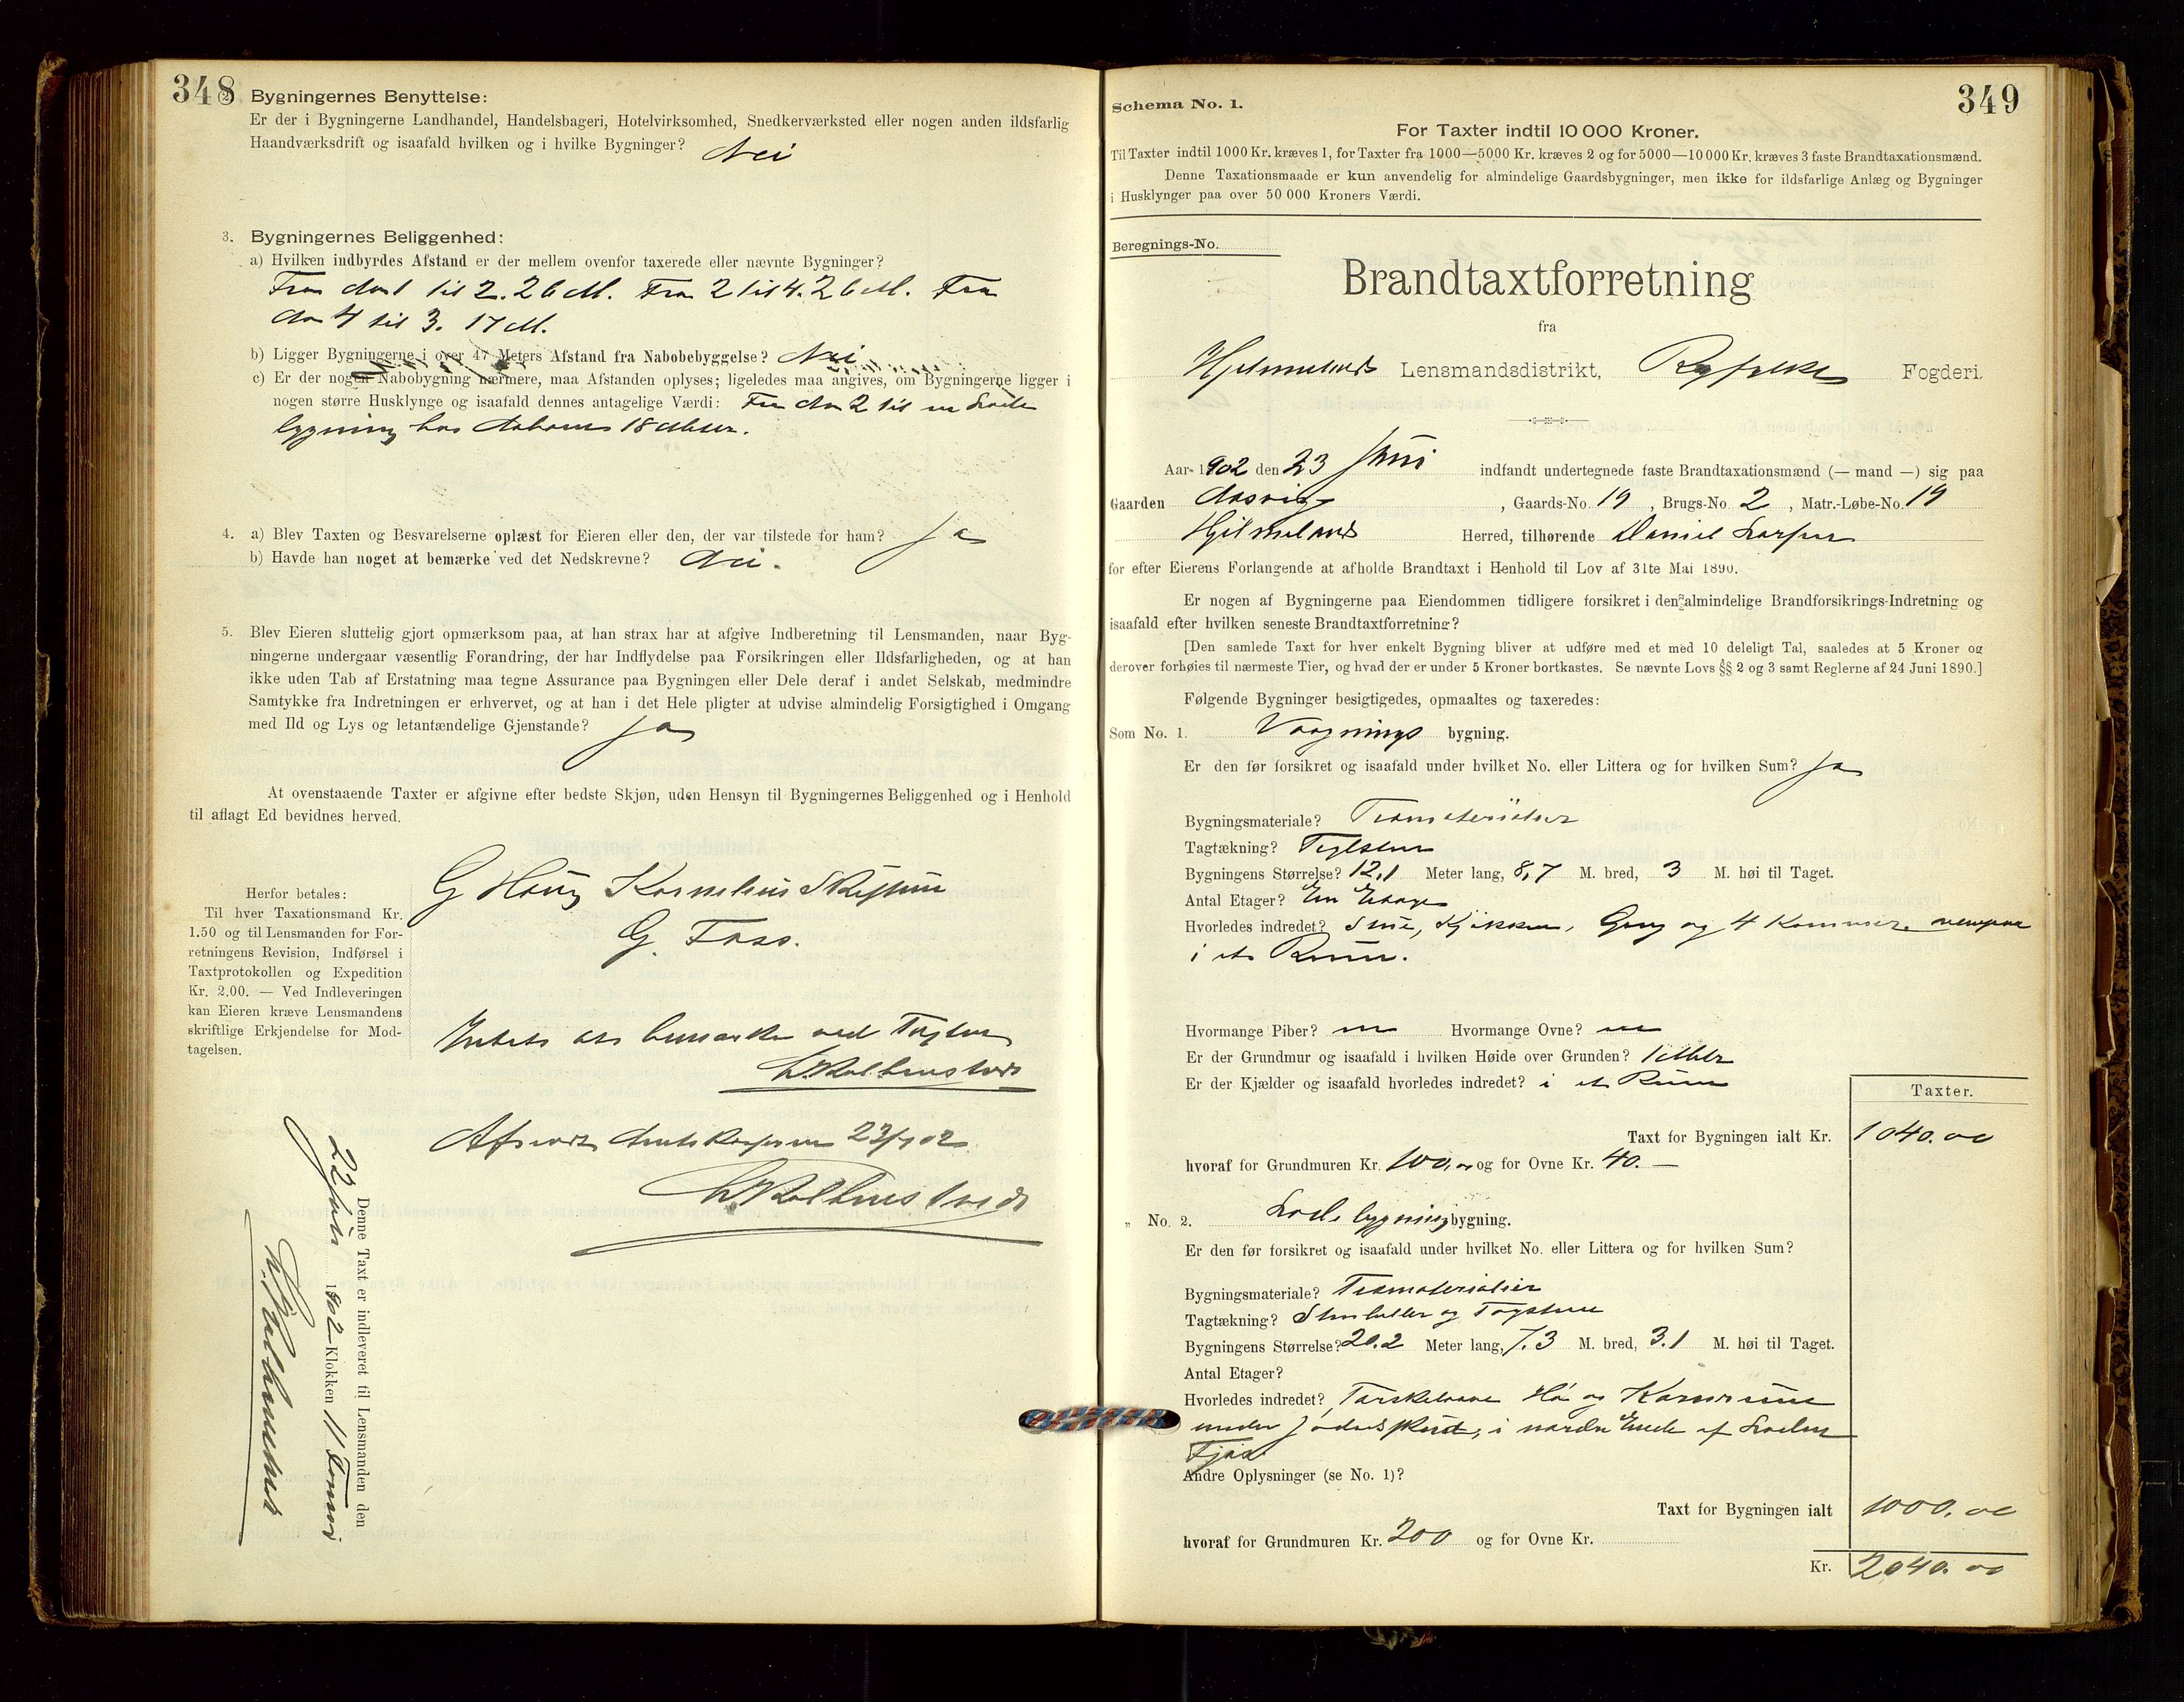 348
2. Bygningernes Benyttelse:
Er der i Bygningerne Landhandel, Handelsbageri, Hotelvirksomhed, Snedkerværksted eller nogen anden ildsfarlig
Haandværksdrift og isaafald hvilken og i hvilke Bygninger? Nei
3. Bygningernes Beliggenhed:
a) Hvilken indbyrdes Afstand er der mellem ovenfor taxerede eller nævnte Bygninger?
Fra No 1 til 2. 26 M. Fra 2 til 4. 26 M. Fra
No 4 til 3. 17 M.
b) Ligger Bygningerne i over 47 Meters Afstand fra Nabobebyggelse? Nei
c) Er der nogen Nabobygning nærmere, maa Afstanden oplyses; ligeledes maa angives, om Bygningerne ligger i
nogen større Husklynge og isaafald dennes antagelige Værdi: Fra No 2 til en Lade
bygning hos Naboens 18 Meter.
4. a) Blev Taxten og Besvarelserne oplæst for Eieren eller den, der var tilstede for ham? Ja
b) Havde han noget at bemærke ved det Nedskrevne? Nei.
5. Blev Eieren sluttelig gjort opmærksom paa, at han strax har at afgive Indberetning til Lensmanden, naar Byg-
ningerne undergaar væsentlig Forandring, der har Indflydelse paa Forsikringen eller Ildsfarligheden, og at han
ikke uden Tab af Erstatning maa tegne Assurance paa Bygningen eller Dele deraf i andet Selskab, medmindre
Samtykke fra Indretningen er erhvervet, og at han i det Hele pligter at udvise almindelig Forsigtighed i Omgang
med Ild og Lys og letantændelige Gjenstande? Ja
At ovenstaaende Taxter er afgivne efter bedste Skjøn, uden Hensyn til Bygningernes Beliggenhed og i Henhold
til aflagt Ed bevidnes herved.
G Houg Kornelius
G. Foss.
Herfor betales:
Til hver Taxationsmand Kr.
1.50 og til Lensmanden for For-
retningens Revision, Indførsel i
Taxtprotokollen og Expedition
Kr. 2.00. — Ved Indleveringen
kan Eieren kræve Lensmandens
skriftlige Erkjendelse for Mod-
tagelsen.
Intet at bemærke ved Taxten
Afsendt 23/7 02
Denne Taxt er indleveret til Lensmanden den
22 Juli 1902 Klokken 11 Formid
349
Schema No. 1.
For Taxter indtil 10 000 Kroner.
Til Taxter indtil 1000 Kr. kræves 1, for Taxter fra 1000—5000 Kr. kræves 2 og for 5000—10 000 Kr. kræves 3 faste Brandtaxationsmænd.
Denne Taxationsmaade er kun anvendelig for almindelige Gaardsbygninger, men ikke for ildsfarlige Anlæg og Bygninger
i Husklynger paa over 50 000 Kroners Værdi.
Beregnings-No.
Brandtaxtforretning
fra
Hjelmelands Lensmandsdistrikt, Ryfylke Fogderi.
Aar 1902 den 23 Juni indfandt undertegnede faste Brandtaxationsmænd (— mand —) sig paa
Gaarden Aasvig, Gaards-No. 19, Brugs-No. 2, Matr.-Løbe-No. 19
Hjelmelands Herred, tilhørende Daniel Larsen
for efter Eierens Forlangende at afholde Brandtaxt i Henhold til Lov af 31te Mai 1890.
Er nogen af Bygningerne paa Eiendommen tidligere forsikret i den almindelige Brandforsikrings-Indretning og
isaafald efter hvilken seneste Brandtaxtforretning?
[Den samlede Taxt for hver enkelt Bygning bliver at udføre med et med 10 deleligt Tal, saaledes at 5 Kroner og
derover forhøies til nærmeste Tier, og hvad der er under 5 Kroner bortkastes. Se nævnte Lovs §§ 2 og 3 samt Reglerne af 24 Juni 1890.]
Følgende Bygninger besigtigedes, opmaaltes og taxeredes:
Som No. 1. Vaagnings bygning.
Er den før forsikret og isaafald under hvilket No. eller Littera og for hvilken Sum? Ja
Bygningsmateriale? Træmaterialier
Tagtækning? Teglsten
Bygningens Størrelse? 12,1 Meter lang, 8,7 M. bred, 3 M. høi til Taget.
Antal Etager? En Etage
Hvorledes indredet? Stue, Kjøkken, Gang og 4 Kammer. ovenpaa
i et Rum.
Hvormange Piber? en Hvormange Ovne? en
Er der Grundmur og isaafald i hvilken Høide over Grunden? 1 Meter
Er der Kjælder og isaafald hvorledes indredet? i et Rum
Taxter.
Taxt for Bygningen ialt Kr. 1040.00
hvoraf for Grundmuren Kr. 100,00 og for Ovne Kr. 40.—
„ No. 2. Lade bygning bygning.
Er den før forsikret og isaafald under hvilket No. eller Littera og for hvilken Sum?
Bygningsmateriale? Træmaterialier
Tagtækning? Stenheller og Tagsten
Bygningens Størrelse? 20.2 Meter lang, 7.3 M. bred, 3.1 M. høi til Taget.
Antal Etager?
Hvorledes indredet? Tærskelaave Hø og Kornrum
under i nordre Ende af Laden
Fjøs
Andre Oplysninger (se No. 1)?
Taxt for Bygningen ialt 1000.00
hvoraf for Grundmuren Kr. 200 og for Ovne Kr.
Kr. 2040.00